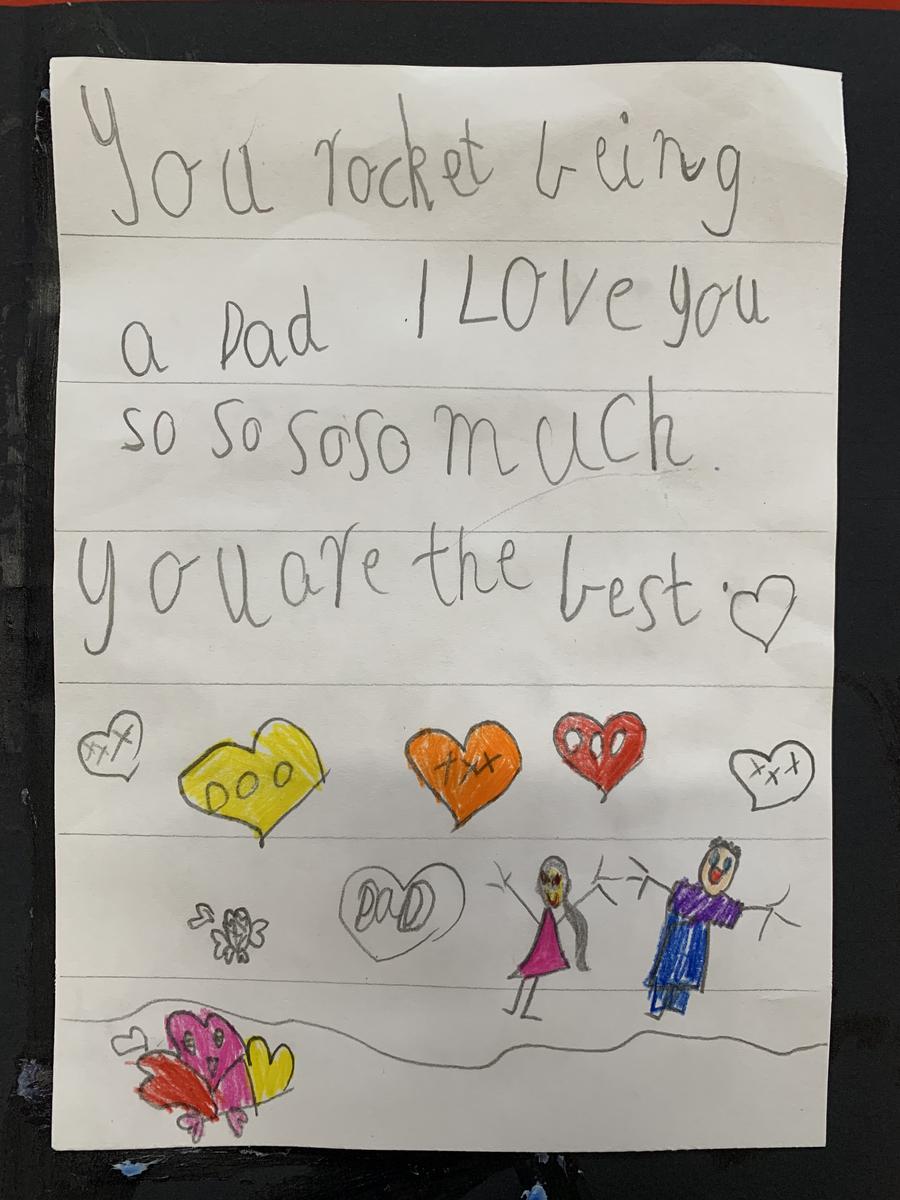 You rocket being
a Dad I LOVe you
so so soso much.
you are the best.
xxx
ooo
xxx
ooo
xxx
DaD